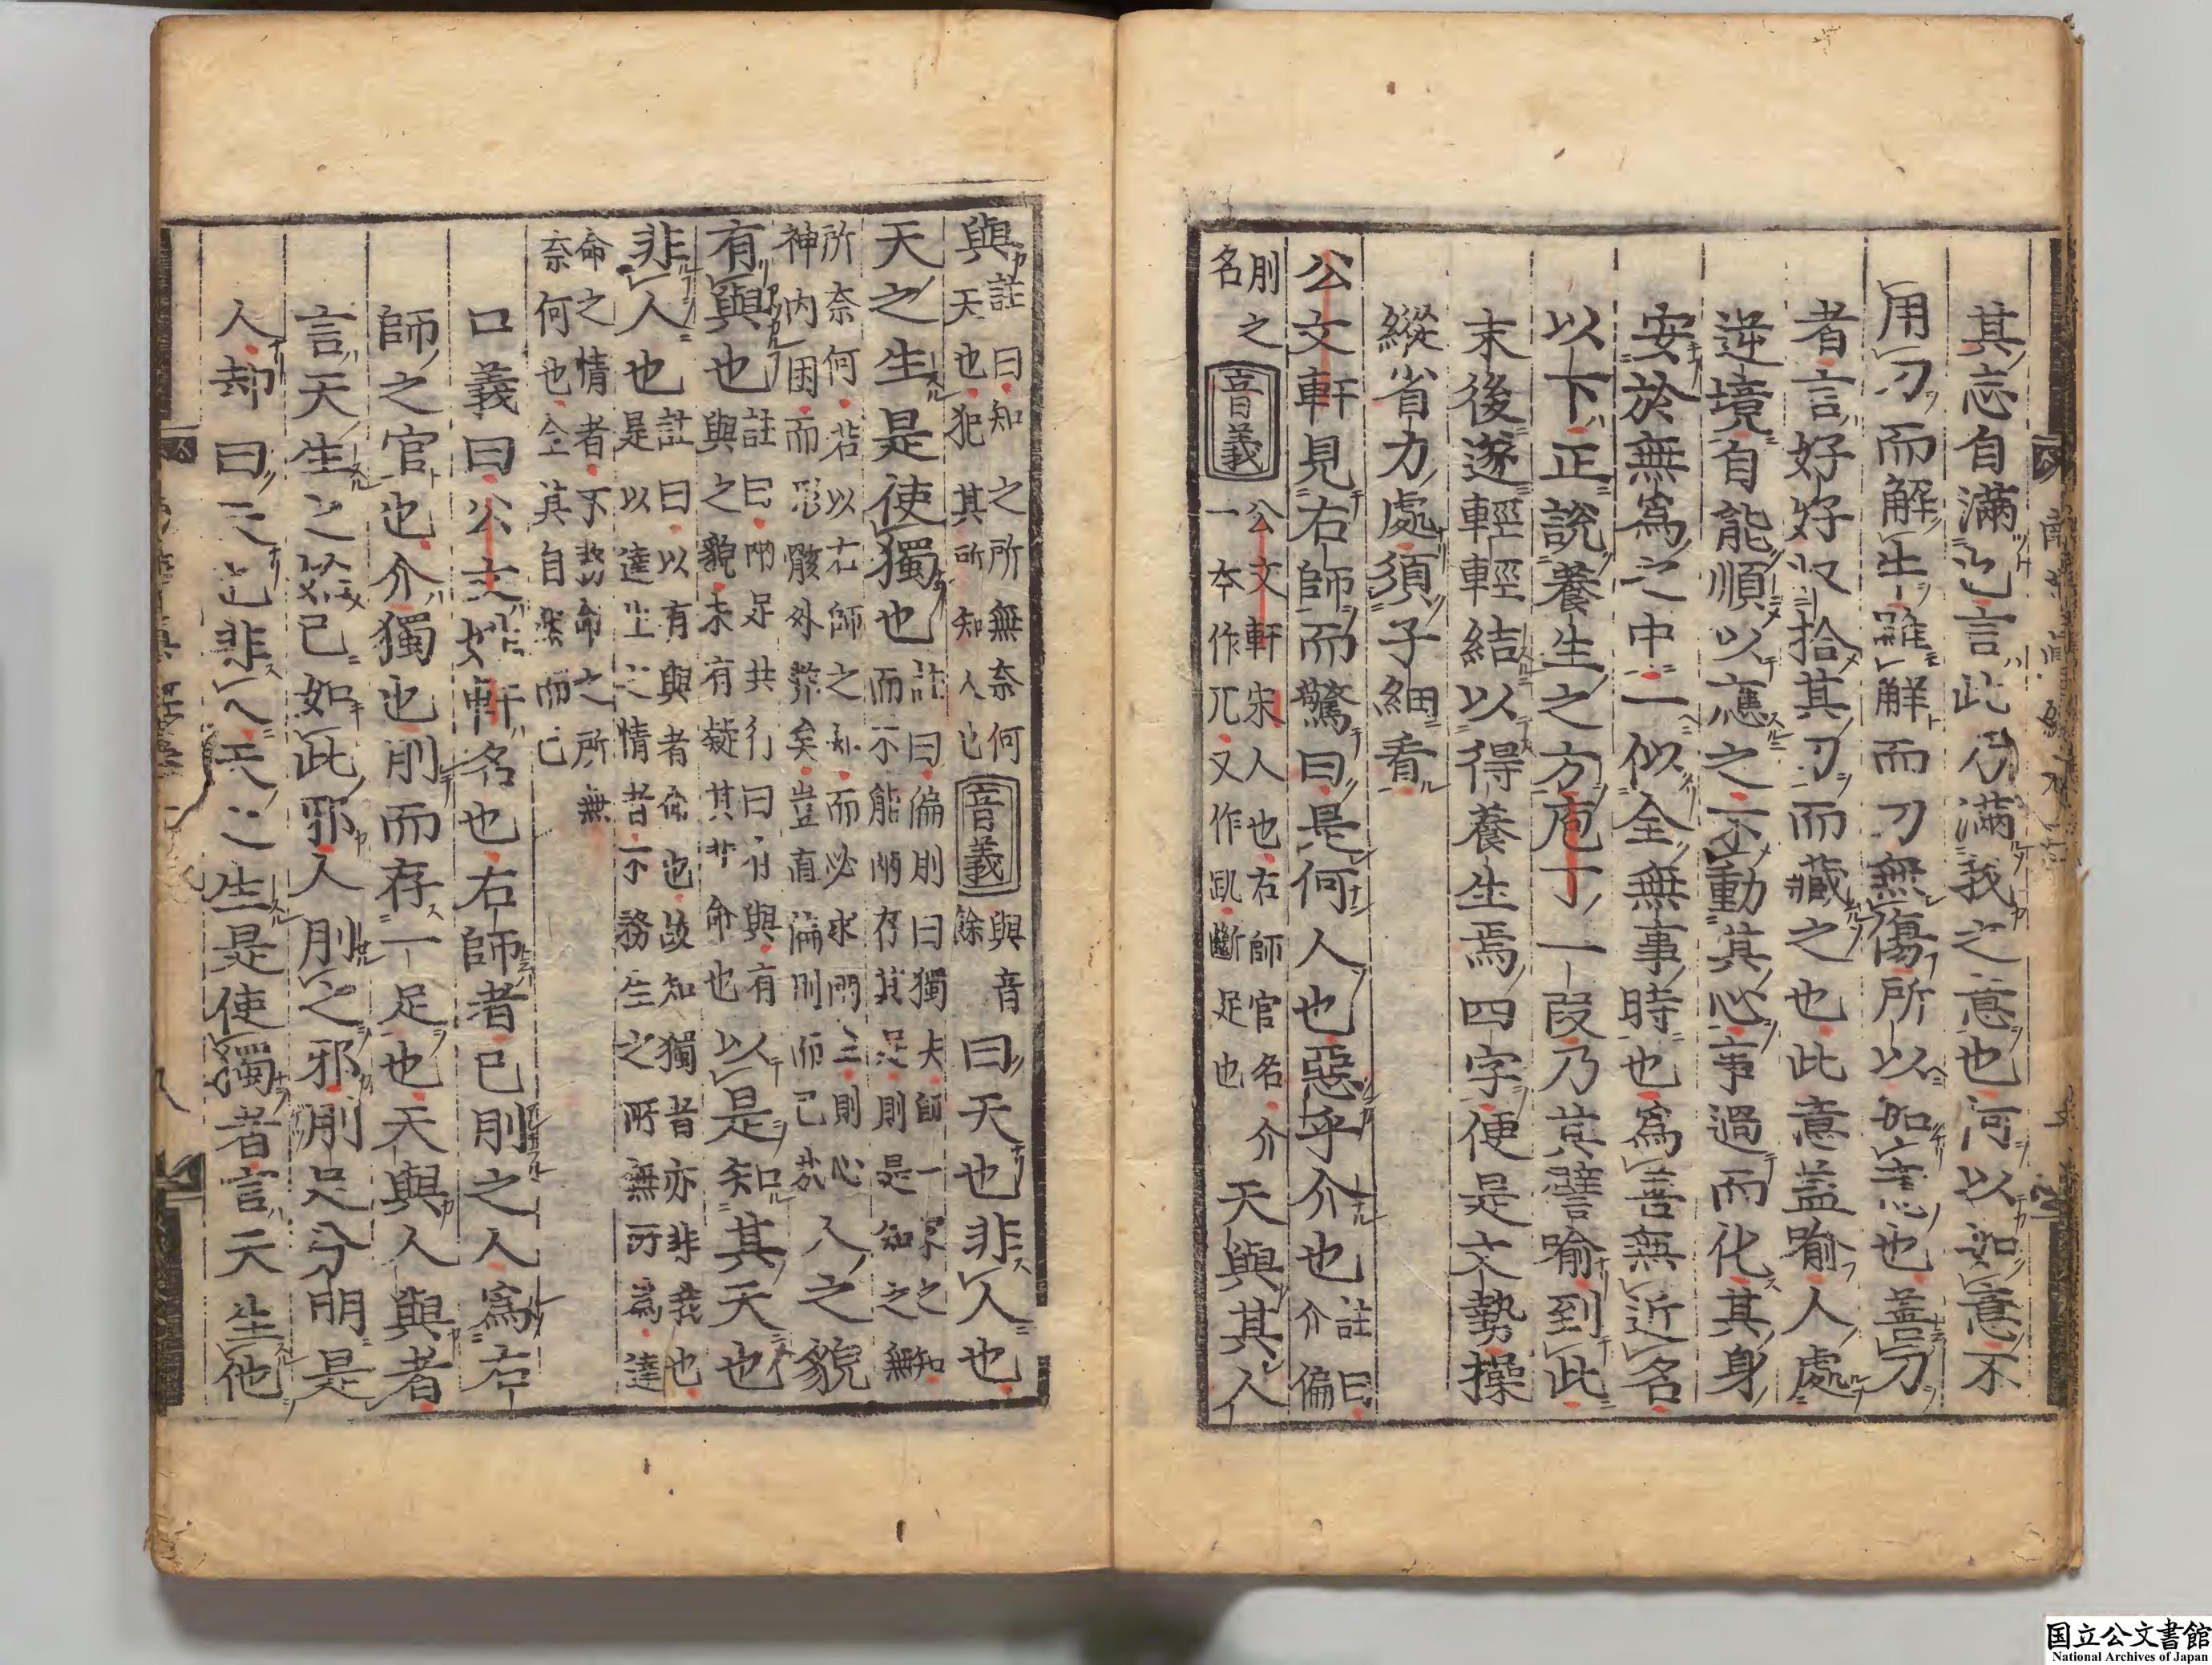 其志自滿也言此乃滿我之意也何以如意不
用刀而解牛雖解而刀無傷所以如意也善刀
者言好好收拾其刀而藏之也此意蓋喻人處
逆境自能順以應之不動其心事過而化其身
安於無爲之中一似全無事時也爲善無近名
以下正說養生之方庖丁一段乃其譬喻到此
末後遂輕輕結以得養生焉四字便是文勢操
縱省力處須子細看
公文軒見右師而驚曰是何人也惡乎介也註曰
介偏
刖之
名音義公文軒宋人也右師官名介
一本作兀又作跀斷足也天與其人
與註曰知之所無奈何
天也犯其所知人也音義與音
餘曰天也非人也
天之生是使獨也註曰偏刖曰獨夫師一家之知
而不能兩存其足則是知之無
所奈何若以右師之知而必求兩全則心
神內困而形骸外弊矣豈直偏刖而已哉人之貌
有與也註曰兩足共行曰有與有
與之貌未有疑其非命也以是知其天也
非人也註曰以有與者命也故知獨者亦非我也
是以達生之情者不務生之所無所爲達
命之情者不務命之所無
奈何也全其自然而已
口義曰公文姓軒名也右師者已刖之人爲右
師之官也介獨也刖而存一足也天與人與者
言天生之如此邪人刖之邪刖足分明是
人却曰天也非人天之生是使獨者言天生他
国立公文書館
National Archives of Japan